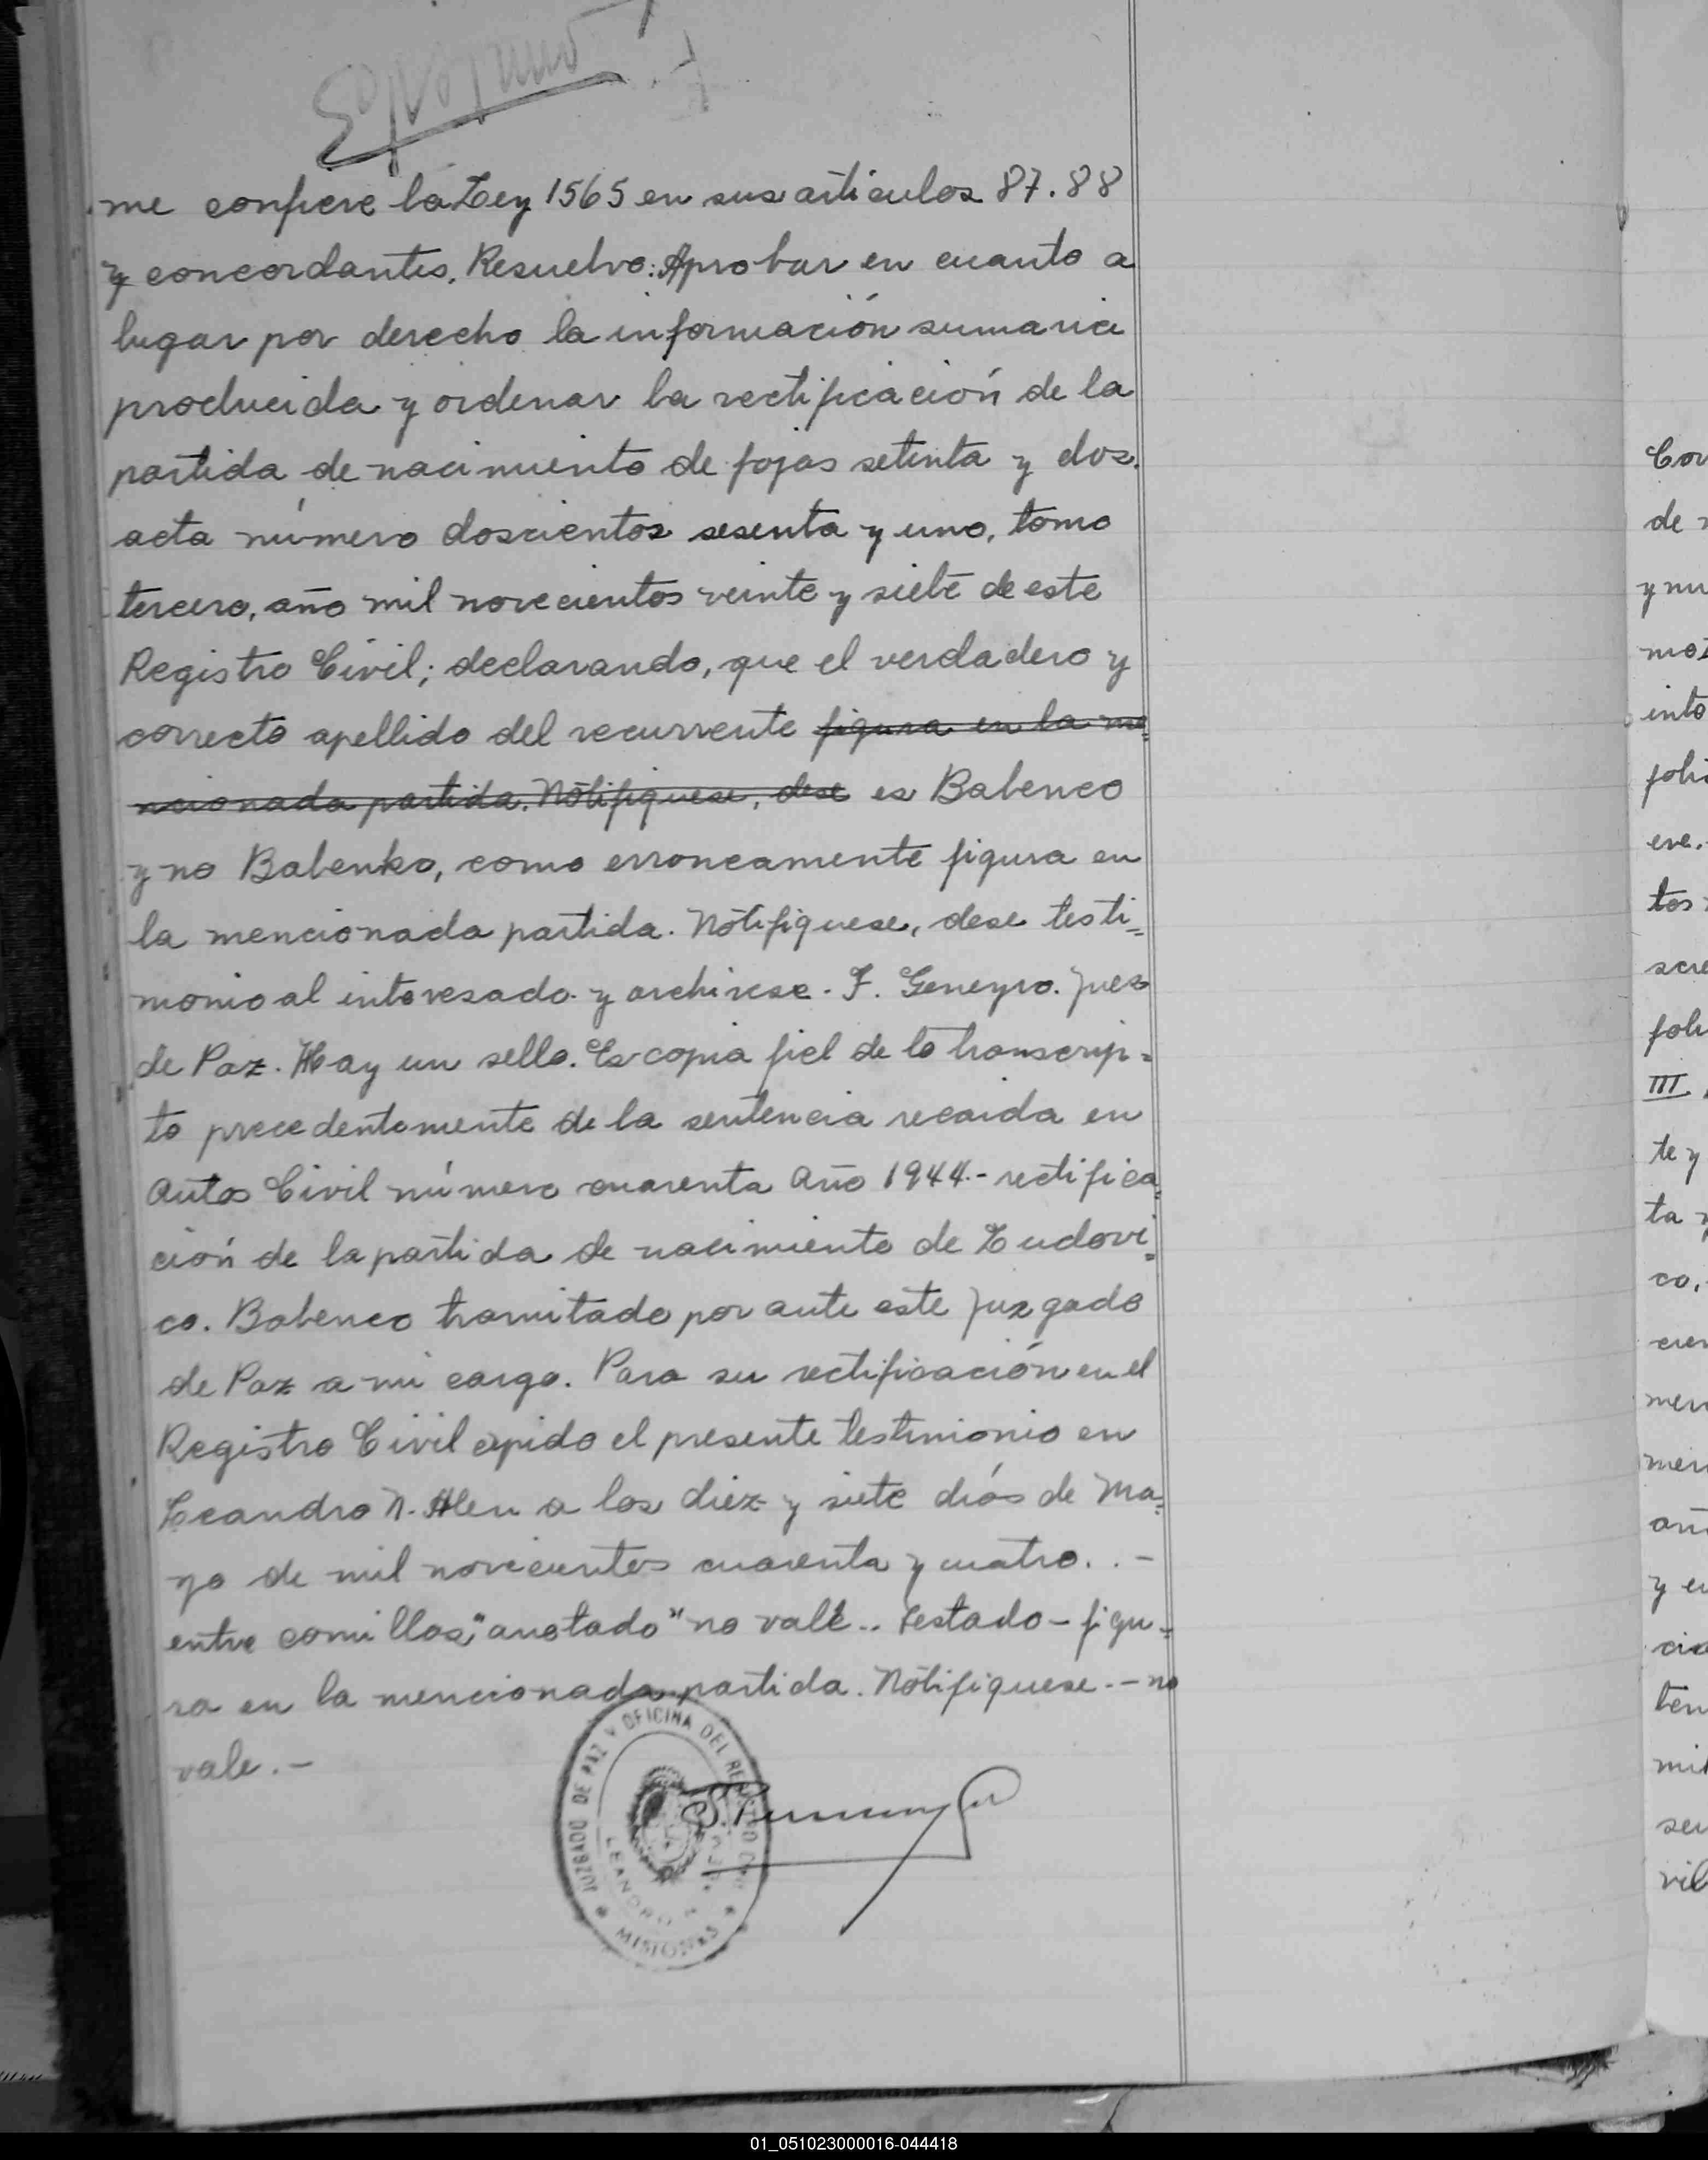 me confiere la Ley 1565 en sus articulos 87.88
y concordantes. Resuelvo: Aprobar en cuanto a
lugar por derecho la información sumaria
producida y ordenar la rectificación de la
partida de nacimiento de fojas setenta y dos.
acta número doscientos sesenta y uno, tomo
tercero, año mil novecientos veinte y siete de este
Registro Civil; declarando, que el verdadero y
correcto apellido del recurrente figura en la me=
ncionada partida. Notifiquese, dese es Babenco
y no Babenko, como erroneamente figura en
la mencionada partida. Notifiquese, dese testi=
monio al interesado y archivese. F. Geneyro. Juez
de Paz. Hay un sello. Es copia fiel de lo transcrip=
to precedentemente de la sentencia recaida en
Autos Civil número cuarenta Año 1944.- rectifica=
ción de la partida de nacimiento de Ludovi=
co. Babenco tramitado por ante este Juzgado
de Paz a mi cargo. Para su rectificación en el
Registro Civil expido el presente testimonio en
Leandro N. Alem a los diez y siete días de Ma=
yo de mil novecientos cuarenta y cuatro. . -
entre comillas "anotado" no vale.. Testado - figu=
ra en la mencionada partida. Notifiquese. - no
vale. -
JUZGADO DE PAZ Y OFICINA DEL REGISTRO CIVIL
LEANDRO N. ALEM
* MISIONES *
Cor
de
y nu
into
foli
eve.
tos
scre
foli
III
te y
ta y
co,
cien
men
men
añ
y cu
cia
ten
mil
sen
vil
01_051023000016-044418